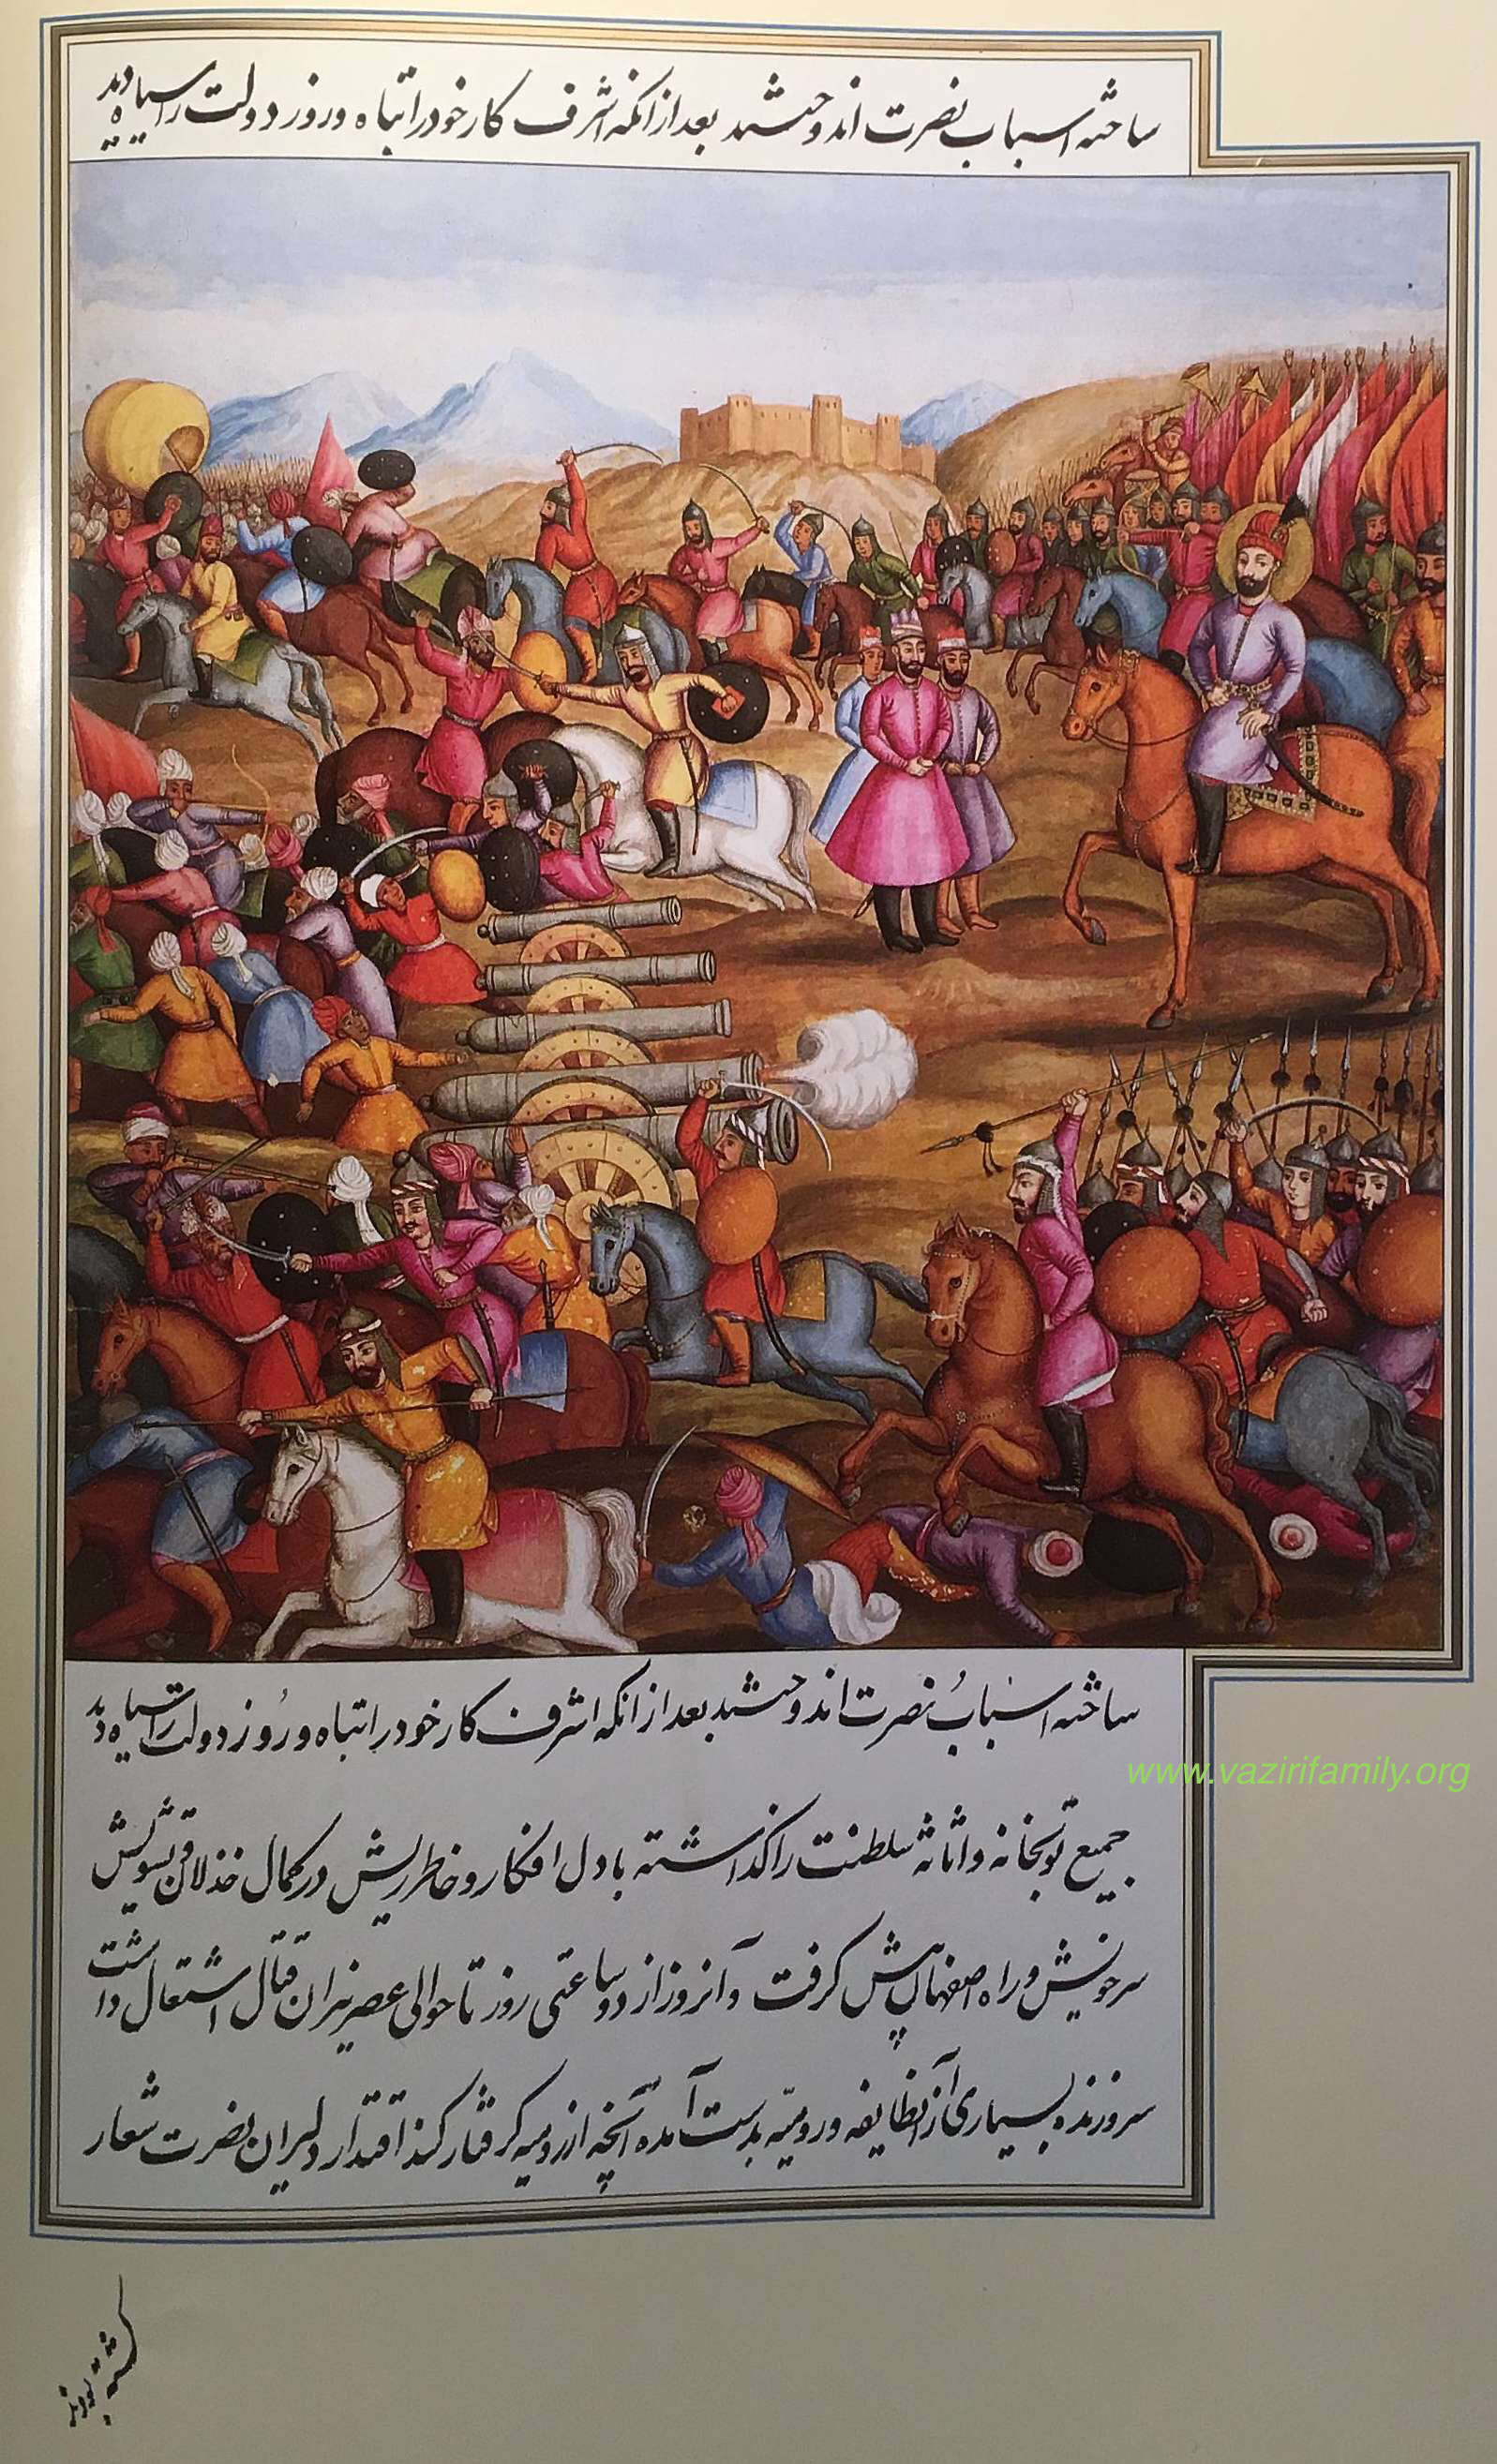 ساخته اسباب نصرت اندوختند بعد از انکه اشرف کار خود را تباه و روز دولت را سیاه دید
ساخته اسباب نصرت اندوختند بعد از انکه اشرف کار خود را تباه و روز دولت را سیاه دید
www.vazirifamily.org
جمیع توپخانه و اثاثه سلطنت را کذاشته با دل افکار و خاطر ریش در کمال خذلان و تشویش
سر خویش و راه اصفهان پیش کرفت و آنروز از دو ساعتی روز تا حوالی عصر نیران قتال اشتعال داشت
سر و زنده بسیاری از آنطایفه و رومیه بدست آمده آنچه از رومیه کرفتار کمند اقتدار دلیران نصرت شعار
کشته بودند